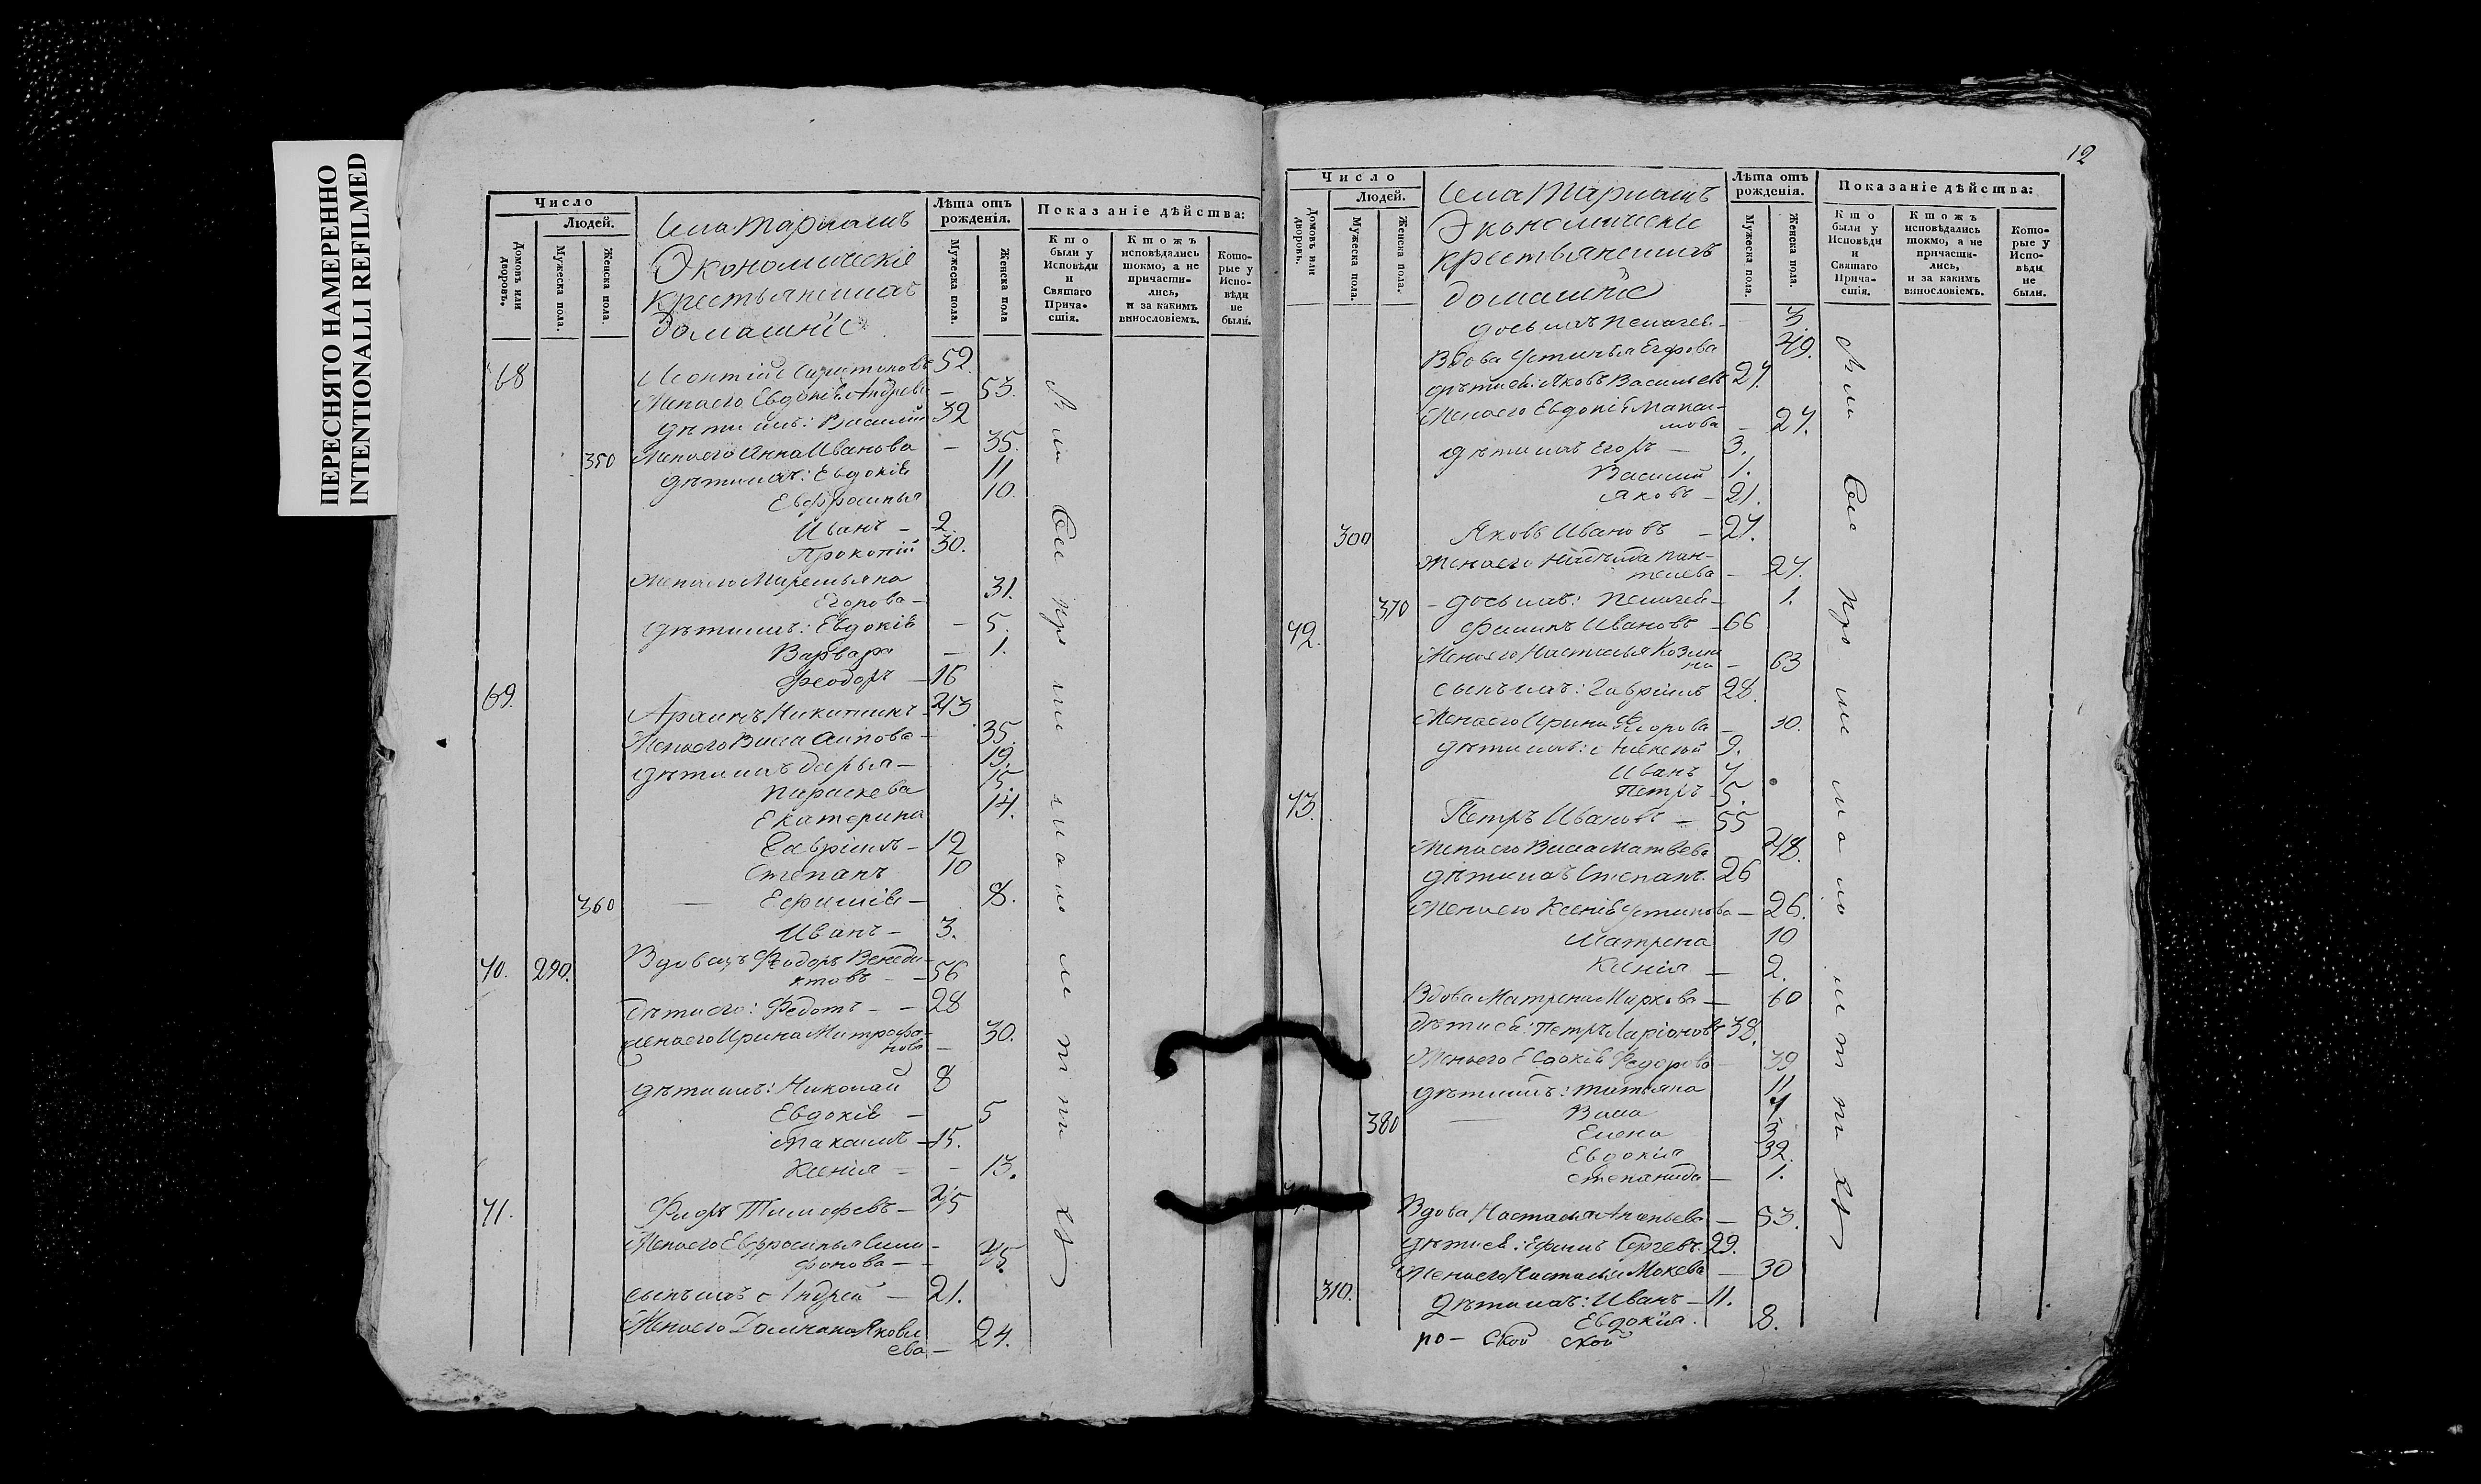 ПЕРЕСНЯТО НАМЕРЕННО
INTENTIONALLI REFILMED
Число
Людей.
Домовъ или дворовъ.
Мужеска пола.
Женска пола.
Экономическіе
крестьяне и ихъ
домашніе
Лѣта отъ рожденія.
Мужеска пола.
Женска пола
Показаніе дѣйства:
Кто были у Исповѣди и Святаго Причастія.
Ктожъ исповѣдались токмо, а не причастились, и за какимъ винословіемъ.
Которые у Исповѣди не были.
68
52.
Жена его Евдокія Андреева — 53.
дѣти ихъ: Василий 32
350 Жена его Анна Иванова — 35.
дѣти ихъ: Евдокія 11
Евфросинья 10.
Иванъ — 2.
Прокопій 30.
Жена его Маремьяна
Егорова — 31.
дѣти ихъ: Евдокія — 5.
Варвара — 1.
Феодоръ — 16
69. Никитинъ 43
Жена его Васса 35.
дѣти ихъ Дарья — 19.
Параскева 15.
Екатерина 14.
Гавріилъ — 12
Степанъ 10
360 — Ефимія — 8.
Иванъ — 3.
70. 290. Вдовецъ Феодоръ Венеди-
ктовъ — 56
дѣти его: Федотъ — 28
жена его Ирина Митрофа-
нова — 30.
дѣти ихъ: Николай 8
Евдокія — 5
Максимъ — 15.
Ксенія — 13.
71. Тимофеевъ — 45
Жена его Евфросинья
45.
сынъ ихъ Андрей — 21.
Жена его Домна Яковл
ева — 24.
12
Число
Людей.
Домовъ или дворовъ.
Мужеска пола.
Женска пола.
Экономическіе
крестьяне и ихъ
домашніе
Лѣта отъ рожденія.
Мужеска пола.
Женска пола.
Показаніе дѣйства:
Кто были у Исповѣди и Святаго Причастія.
Ктожъ исповѣдались токмо, а не причастились, и за какимъ винословіемъ.
Которые у Исповѣди не были.
дочь ихъ 3.
Вдова Устинья Егорова 49.
дѣти ея: Яковъ Васильевъ 27.
Жена его Евдокія Макси-
мова — 27.
дѣти ихъ Егоръ — 3.
Василий 1.
Яковъ — 21.
300 Яковъ Ивановъ — 27.
Жена его Пан-
телева — 27.
370 — дочь ихъ: 1.
72. Филипъ Ивановъ — 66
Жена его Настасья Козми
на — 63
сынъ ихъ: Гавріилъ 28.
Жена его Ирина 30.
дѣти ихъ: Алексѣй 9.
Иванъ 7
Петръ 5.
73. Петръ Ивановъ — 55
Жена его Васса Матвѣева 48.
дѣти ихъ Степанъ. 26
Жена его Ксенія Устинова — 26.
Матрена 10
Ксенія — 2.
Вдова Матрена Маркова — 60
дѣти ея: Петръ Ларіоновъ 38.
Жена его Евдокія Федорова — 39
дѣти ихъ: Татьяна 11
380 — Васса 7
Елена 3
Евдокія 32.
Степанида — 1.
Вдова Настасья Ананьева — 53.
дѣти ея: Ефимъ Сергеевъ. 29.
Жена его Настасья Мокева — 30
310. дѣти ихъ: Иванъ — 11.
Евдокія. 8.
ро — ской ской